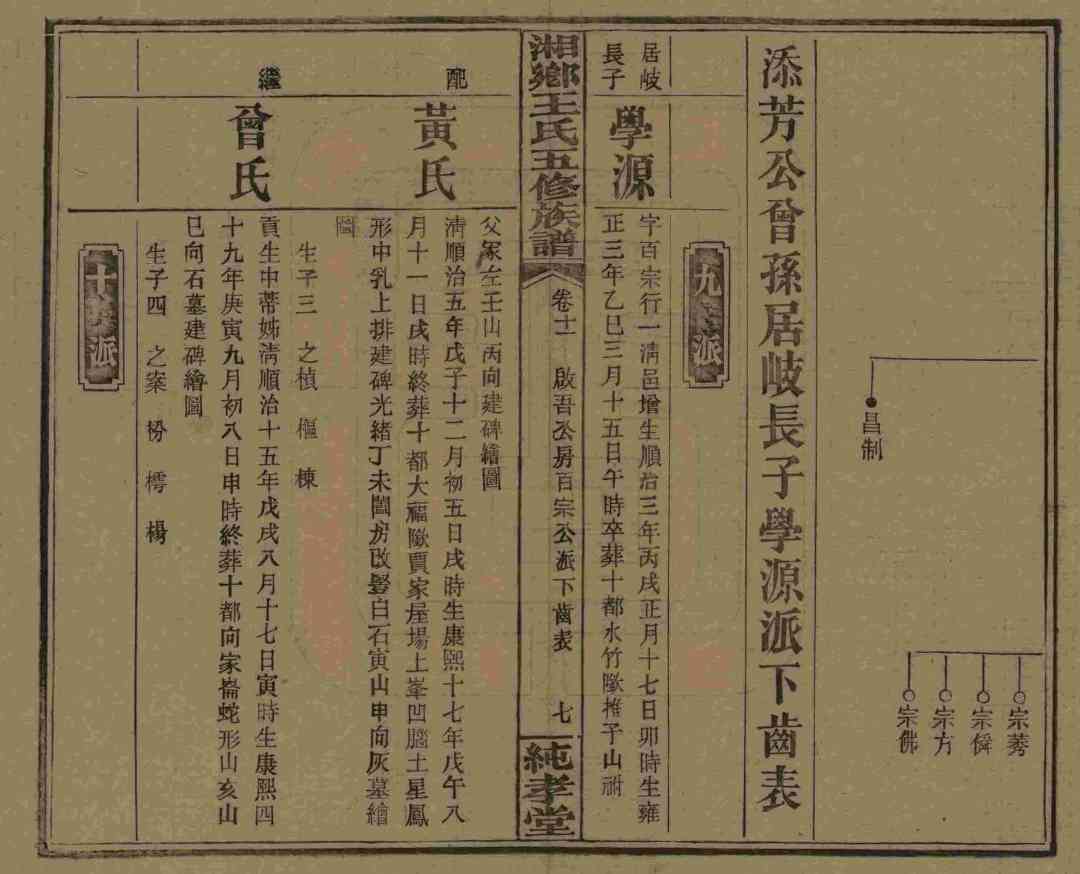 昌制
宗蒡
宗僢
宗方
宗佛
添芳公曾孫居岐長子學源派下齒表
九派
居岐
長子
學源
字百宗行一清邑增生順治三年丙戌正月十七日卯時生雍
正三年乙巳三月十五日午時卒葬十都水竹㘰推子山祔
湘鄉王氏五修族譜
卷十二 啟吾公房百宗公派下齒表 七
純孝堂
父冢左壬山丙向建碑繪圖
配
黃氏
清順治五年戊子十二月初五日戌時生康熙十七年戊午八
月十一日戌時終葬十都大福㘰賈家屋場上峯凹腦土星鳳
形中乳上排建碑光緒丁未闔房改豎白石寅山申向灰墓繪
圖
生子三 之楨 樞 棟
繼
曾氏
貢生中蒂姊清順治十五年戊戌八月十七日寅時生康熙四
十九年庚寅九月初八日申時終葬十都向家崙蛇形山亥山
巳向石墓建碑繪圖
生子四 之案 枌 樗 楊
十派